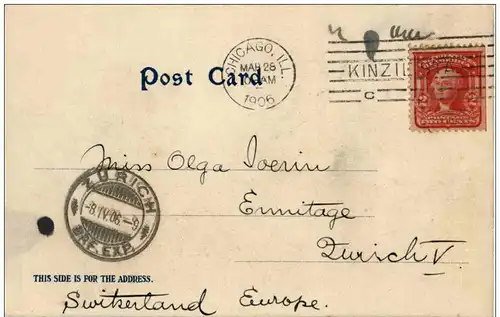 CHICAGO, ILL.
MAR 28
AM
1906
KINZI
C
Post Card
Miss Olga
Ermitage
Zurich V.
ZÜRICH
-8.IV.06.-9
BRF. EXP.
THIS SIDE IS FOR THE ADDRESS.
Switzerland Europe.